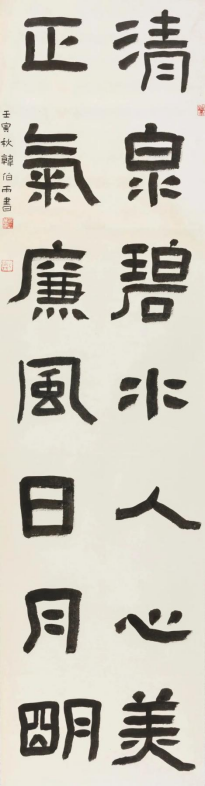 清泉碧水人心美
正氣廉風日月明
壬寅秋韓伯雨書